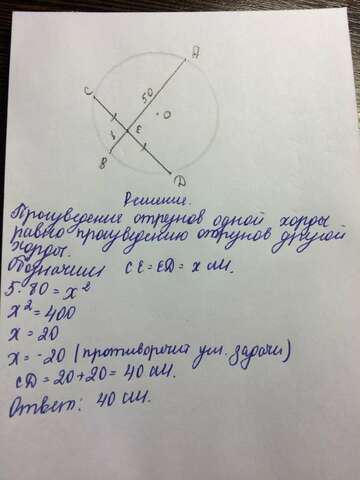 A
C
50
O
E
B
D
Решение.
Произведение отрезков одной хорды
равно произведению отрезков другой
хорды.
Обозначим CE=ED=x см.
5·80=x²
x²=400
x=20
x=-20 (противоречит усл. задачи)
CD=20+20=40 см.
Ответ: 40 см.